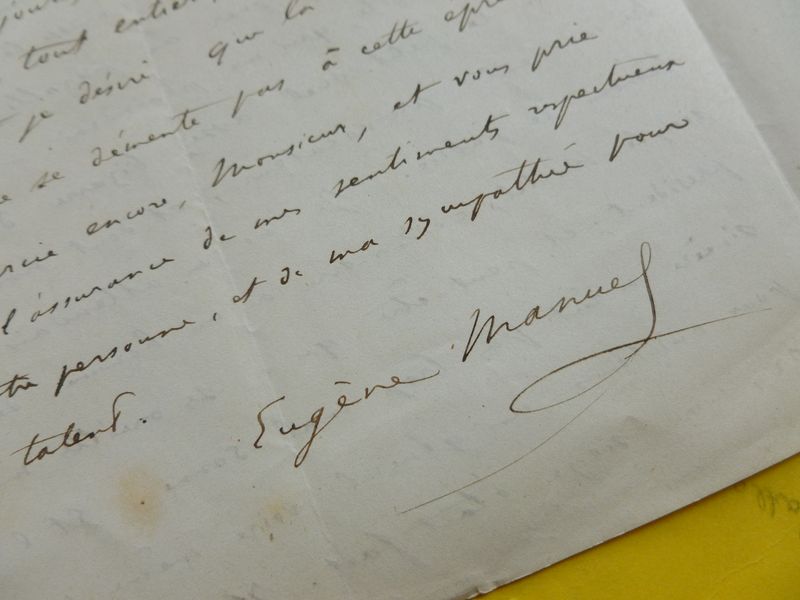 tout entier
je désire que la
se démente pas à cette
encore, Monsieur, et vous prie
l'assurance de mes sentiments respectueux
personne, et de ma sympathie pour
talent.
Eugène Manuel